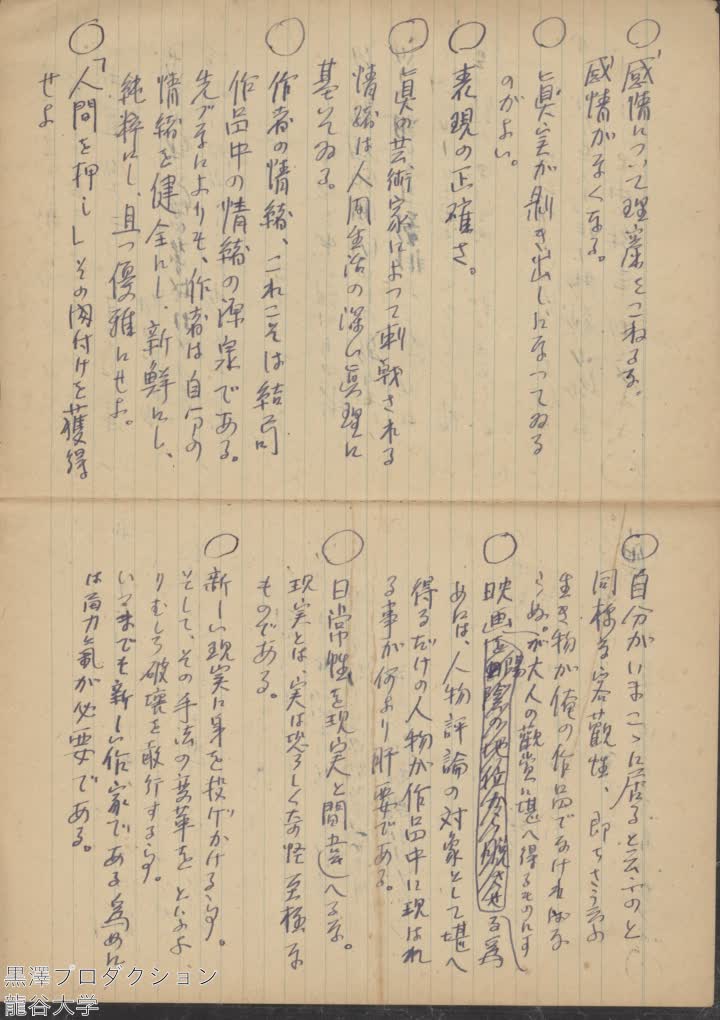 ○「感情について理窟をこねるな。
感情がなくなる。
○真実が剥き出しになつてゐる
のがよい。
○表現の正確さ。
○真の芸術家によつて刺戟される
情緒は人間生活の深い真理に
基いてゐる。
○作者の情緒、これこそは結局
作品中の情緒の源泉である。
先づなによりも、作者は自分の
情緒を健全にし、新鮮にし、
純粋にし、且つ優雅にせよ。
○「人間を押し その肉付けを獲得
せよ
○自分がいまこゝに居ると云ふのと
同様な客観性、即ちさう云ふ
生き物が俺の作品でなければな
らぬ。が大人の観賞に堪へ得るものにす
○映画を る為
めには、人物評論の対象として堪へ
得るだけの人物が作品中に現はれ
る事が何より肝要である。
○日常性を現実と間違へるな。
現実とは、実は恐ろしく奇怪至極な
ものである。
○新しい現実に身を投げかけるんだ。
そして、その手法の変革を
りむしろ破壊を敢行するんだ。
いつまでも新しい作家である為めに
は 力 気が必要である。
黒澤プロダクション
龍谷大学